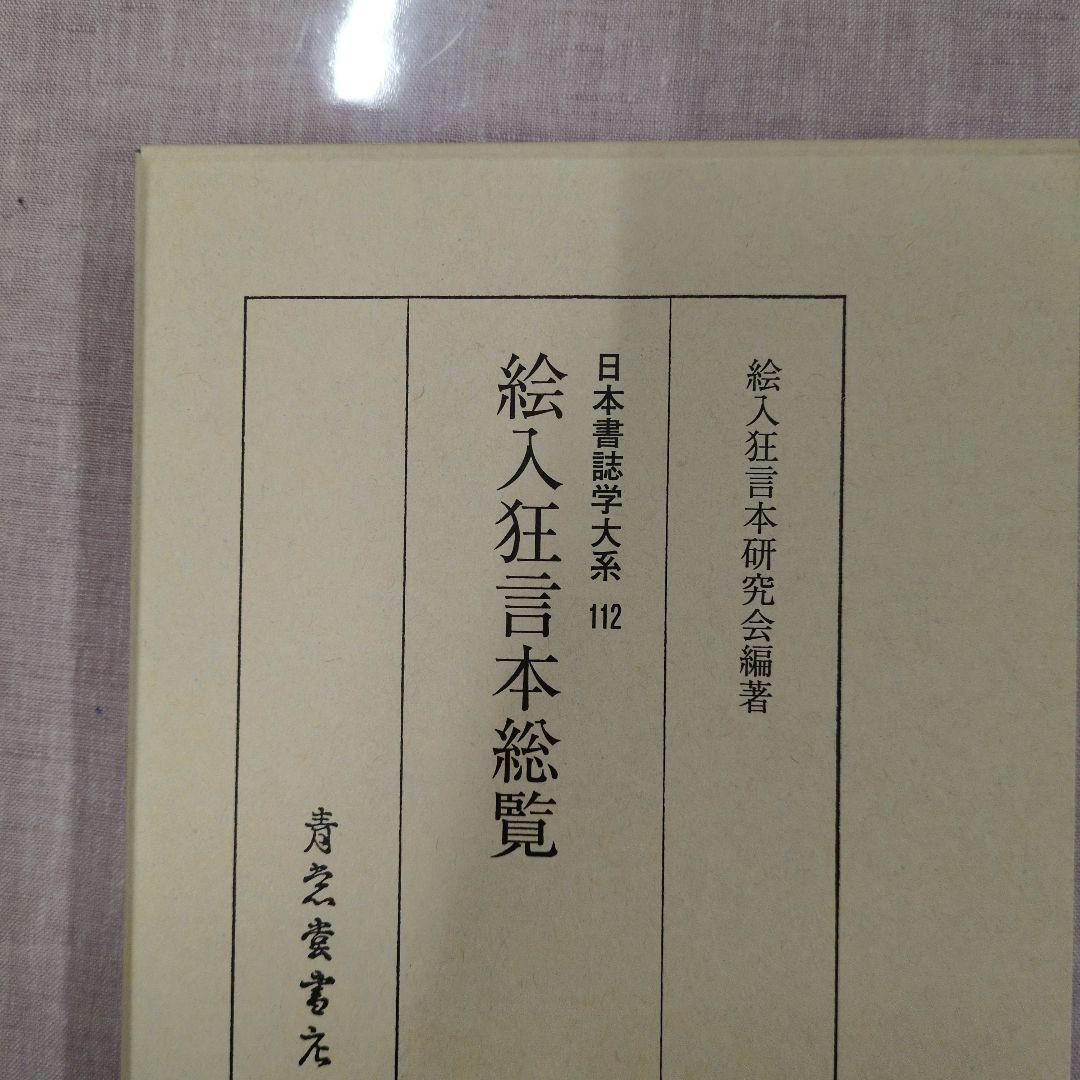 絵入狂言本研究会編著
日本書誌学大系 112
絵入狂言本総覧
青裳堂書店